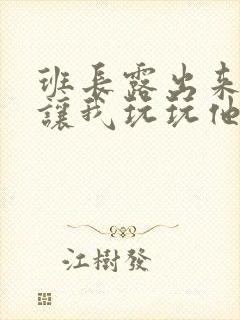 班長露出來
讓我玩玩他
江樹發